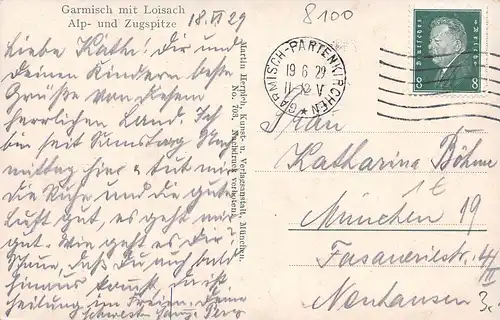 Garmisch mit Loisach
Alp- und Zugspitze
18. VI 29
8100
Liebe Käthe! Dir und
deinen Kindern beste
Grüße von diesem
herrlichen Land. Ich
bin seit Samstag
mittag hier u. tut mir
die Ruhe und die gute
Luft gut, es geht mir
gut. Wie geht es Dir
Schaue, daß Du auch bald
hinaus kannst,
im Freien. Deine
Martin Herpich, Kunst- u. Verlagsanstalt, München.
No. 703. Nachdruck verboten.
GARMISCH-PARTENKIRCHEN
19 6 29
11-12 V
8 8
Frau
Katharina Böhme
München 19
Fasaneriestr. 4/III
Neuhausen